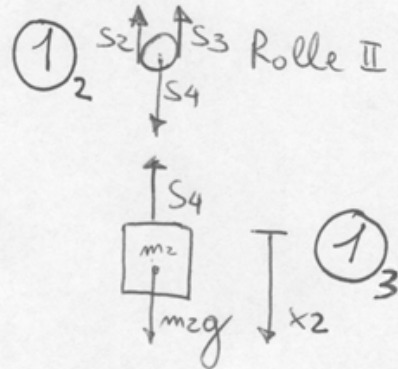 1 2
S2 S3 Rolle II
S4
S4
m2
m2g
x2
1 3